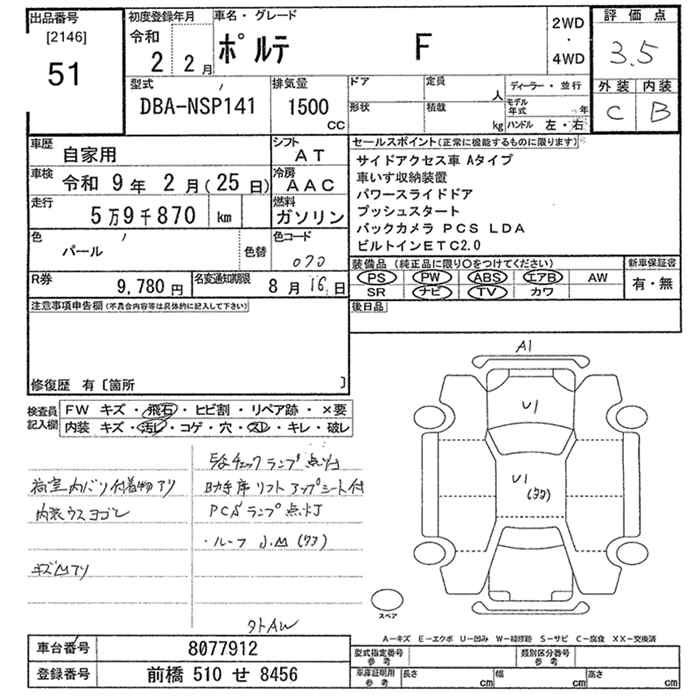 出品番号
[2146]
51
初度登録年月
令和
2 2月
車名・グレード
ポルテ F
2WD
・
4WD
評価点
3.5
外装 内装
C B
型式
DBA-NSP141
排気量
1500
CC
ドア
定員
人
形状
積載
kg
ディーラー・並行
モデル年式 年
ハンドル 左・右
車歴
自家用
シフト
AT
車検
令和 9年 2月(25日)
冷房
AAC
走行
5万9千870 km
燃料
ガソリン
色
パール
色替
色コード
070
R券
9,780円
名変通知期限
8月16日
セールスポイント(正常に機能するものに限ります)
サイドアクセス車 Aタイプ
車いす収納装置
パワースライドドア
プッシュスタート
バックカメラ PCS LDA
ビルトインETC2.0
装備品(純正品に限り○をつけてください)
PS PW ABS エアB AW
SR ナビ TV カワ
新車保証書
有・無
後日品
注意事項申告欄(不具合内容等は具体的に記入して下さい)
修復歴 有〔箇所 〕
検査員記入欄
FW キズ・飛石・ヒビ割・リペア跡・×要
内装 キズ・汚レ・コゲ・穴・スレ・キレ・破レ
荷室内バリ付着物アリ
内装ウスヨゴレ
キズ凹アリ
チェックランプ点灯
助手席リフトアップシート付
PCSランプ点灯
・ルーフ 小凹(ワヲ)
外AW
A1
U1
U1
(ワヲ)
スペア
A－キズ E－エクボ U－凹み W－補修跡 S－サビ C－腐食 XX－交換済
車台番号
8077912
登録番号
前橋 510 せ 8456
型式指定番号
参考
類別区分番号
参考
車庫証明用
参考
長さ cm
幅 cm
高さ cm